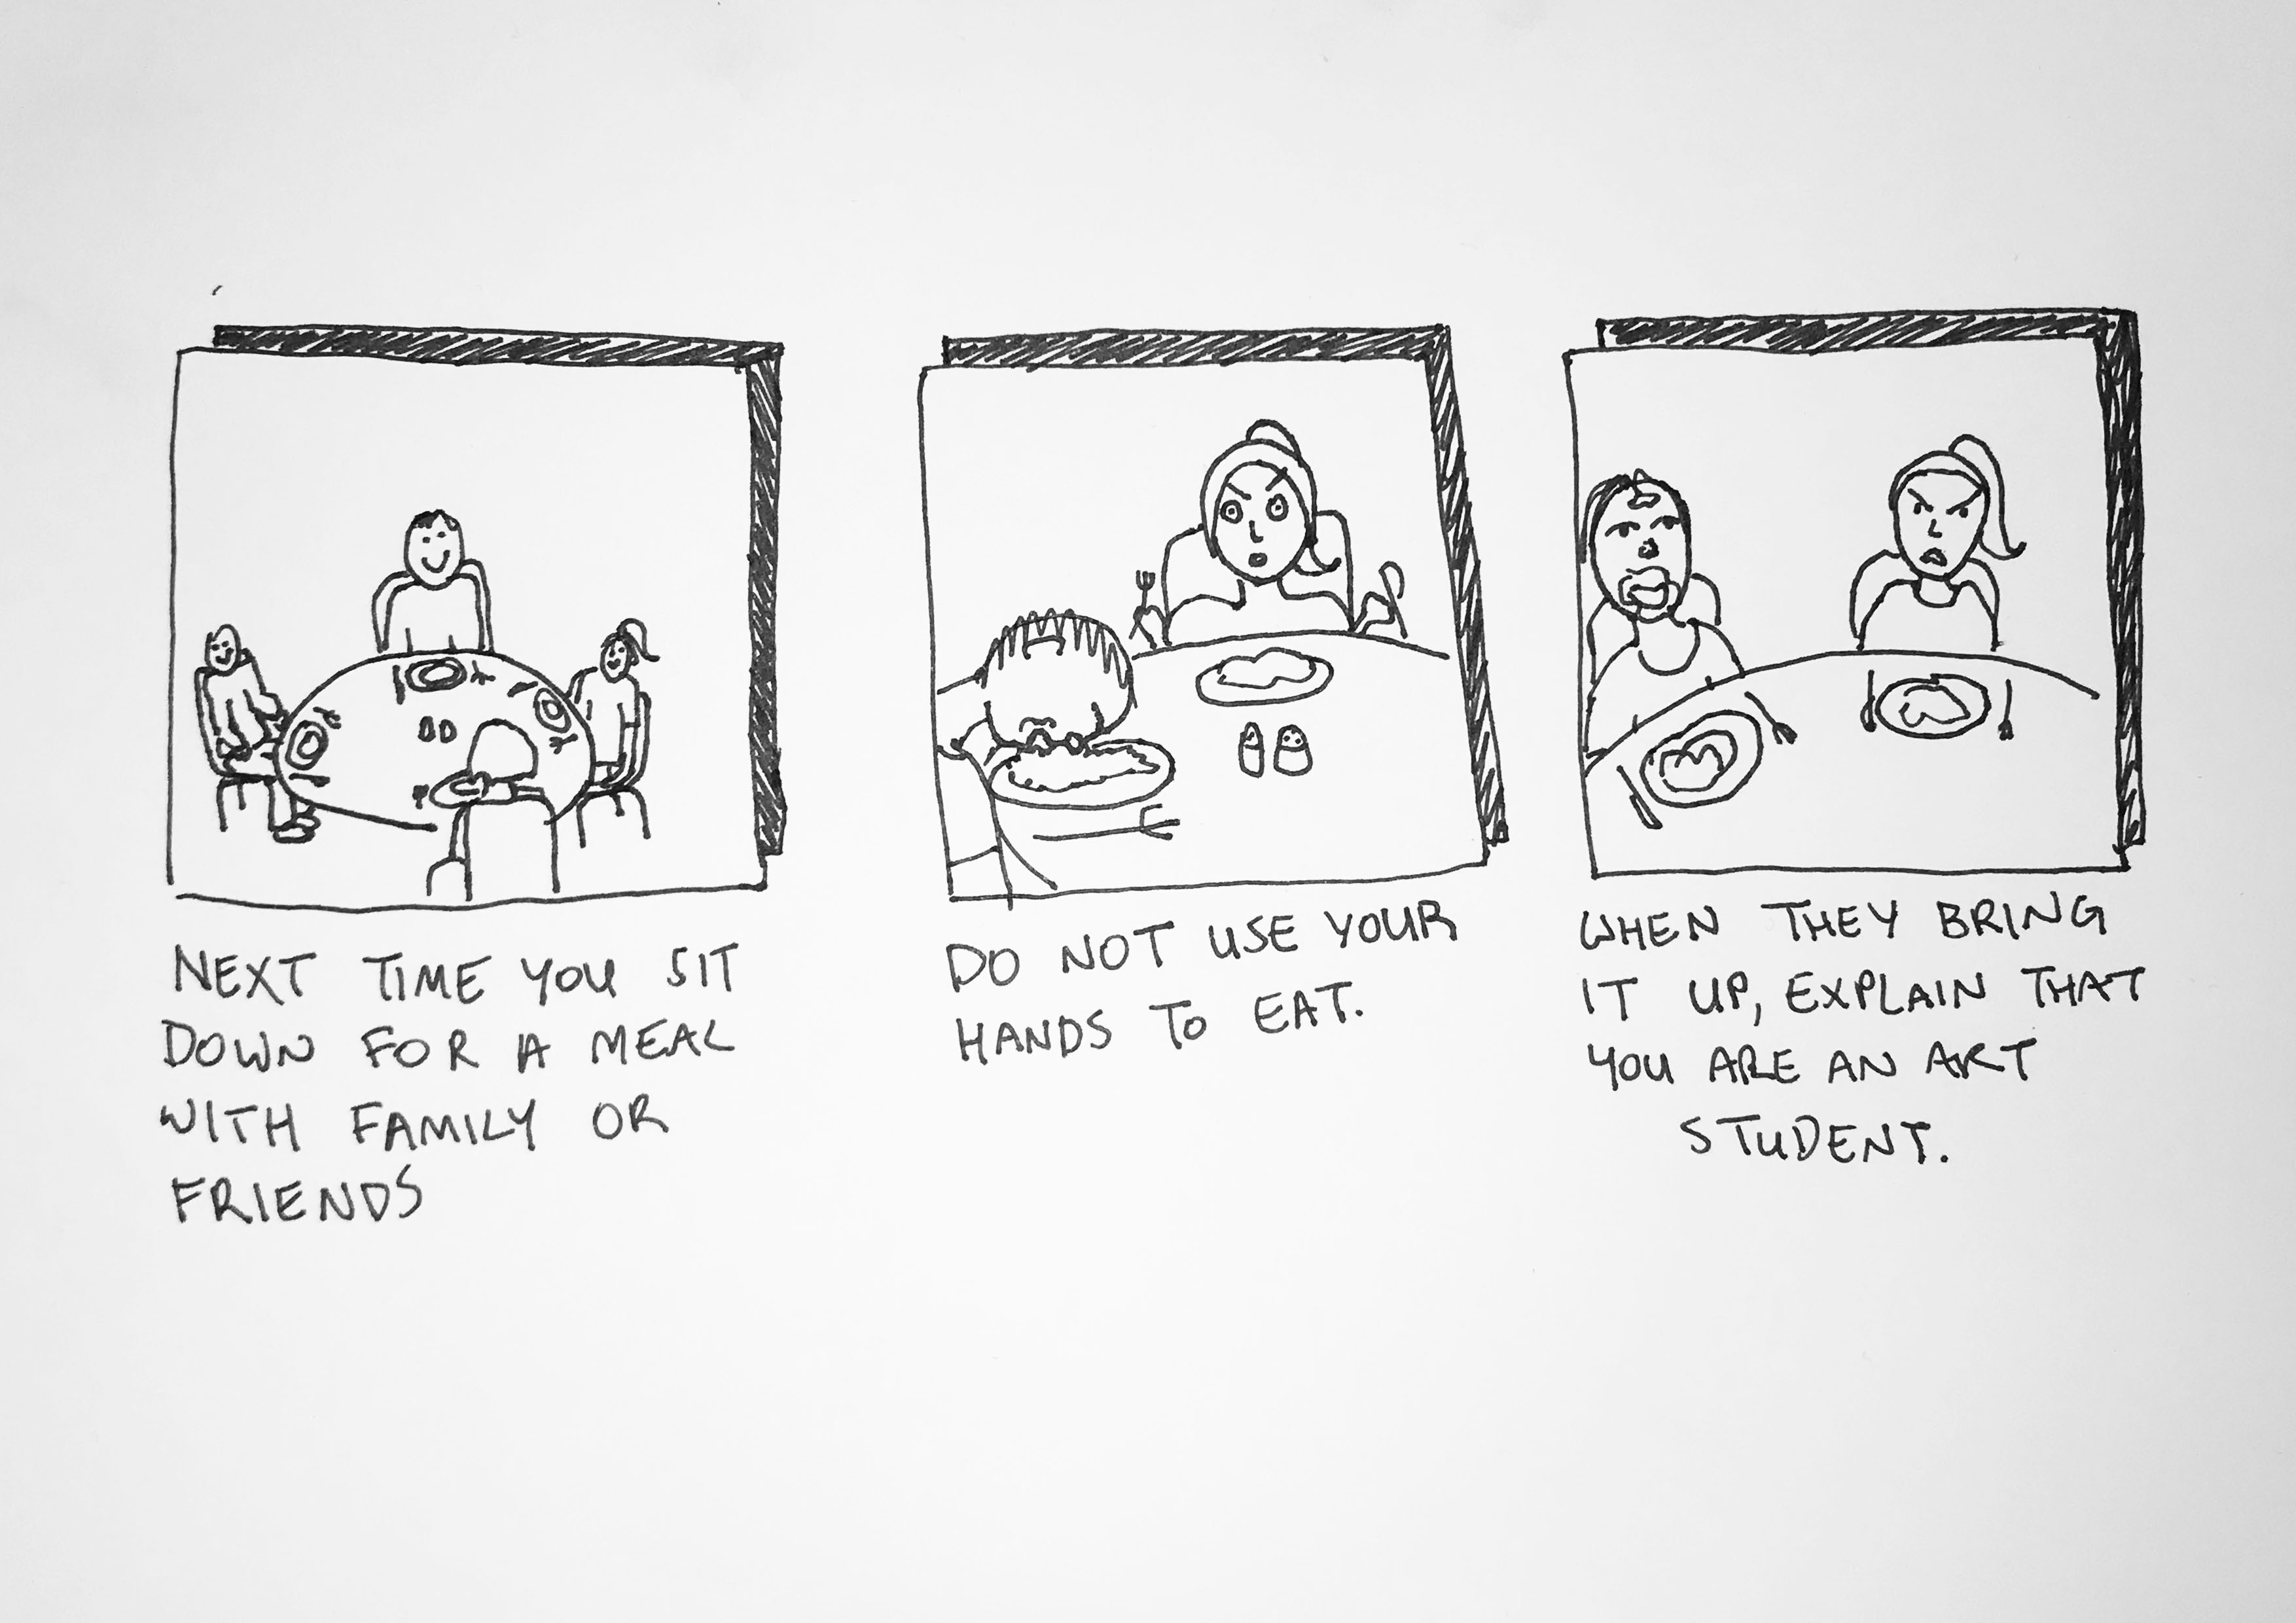 NEXT TIME YOU SIT
DOWN FOR A MEAL
WITH FAMILY OR
FRIENDS
DO NOT USE YOUR
HANDS TO EAT.
WHEN THEY BRING
IT UP, EXPLAIN THAT
YOU ARE AN ART
STUDENT.